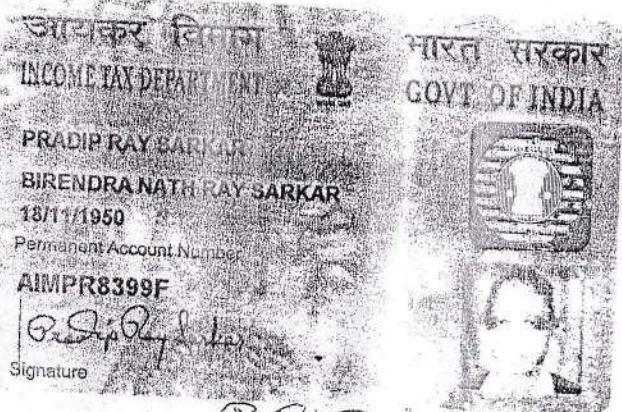 आयकर विभाग
INCOME TAX DEPARTMENT
भारत सरकार
GOVT. OF INDIA
PRADIP RAY SARKAR
BIRENDRA NATH RAY SARKAR
18/11/1950
Permanent Account Number
AIMPR8399F
Pradip Ray Sarkar
Signature